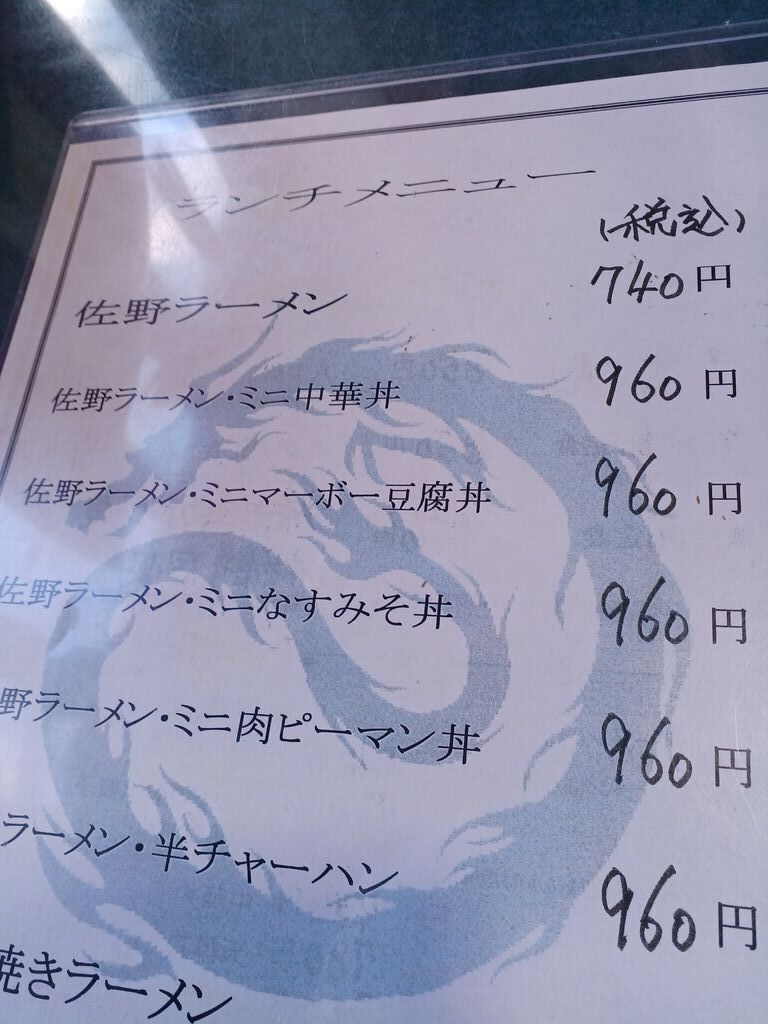 ランチメニュー
(税込)
佐野ラーメン 740円
佐野ラーメン・ミニ中華丼 960円
佐野ラーメン・ミニマーボー豆腐丼 960円
佐野ラーメン・ミニなすみそ丼 960円
野ラーメン・ミニ肉ピーマン丼 960円
ラーメン・半チャーハン 960円
焼きラーメン